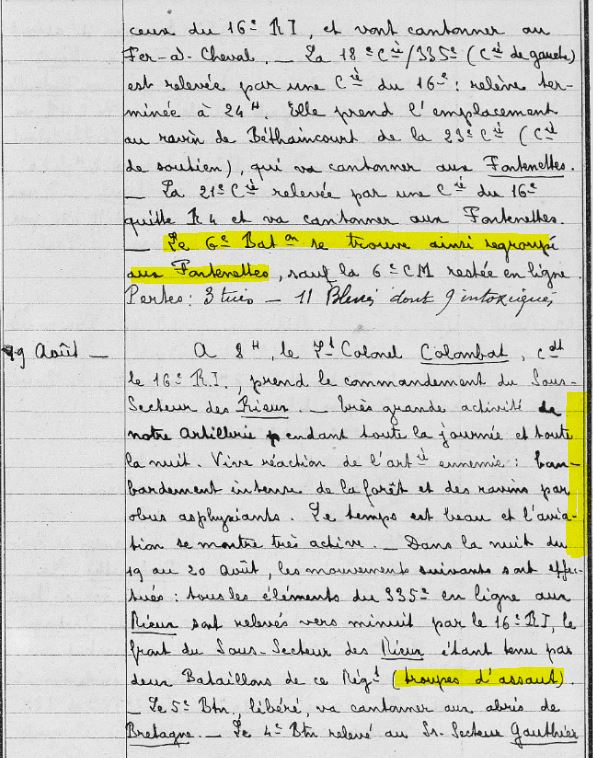 ceux du 16e RI, et vont cantonner au
Fer-à-Cheval. _ La 18e Cie/335e (Cie de gauche)
est relevée par une Cie du 16e : relève ter-
minée à 24H. Elle prend l'emplacement
au ravin de Béthaincourt de la 23e Cie (Cie
de soutien), qui va cantonner aux Fontenettes.
_ La 21e Cie relevée par une Cie du 16e
quitte R4 et va cantonner aux Fontenettes.
_ Le 6e Baton se trouve ainsi regroupé
aux Fontenettes, sauf la 6e CM restée en ligne.
Pertes : 3 tués _ 11 Blessés dont 9 intoxiqués
19 Août _ A 8H, le Lt Colonel Colombat, Cdt
le 16e R.I., prend le commandement du Sous-
Secteur des Rieux. _ Très grande activité de
notre Artillerie pendant toute la journée et toute
la nuit. Vive réaction de l'artie ennemie : bom-
bardement intense de la forêt et des ravins par
obus asphyxiants. Le temps est beau et l'avia-
tion se montre très active. _ Dans la nuit du
19 au 20 Août, les mouvements suivants sont effec-
tués : tous les éléments du 335e en ligne aux
Rieux sont relevés vers minuit par le 16e RI, le
front du Sous-Secteur des Rieux étant tenu par
deux Bataillons de ce Régt (troupes d'assaut).
_ Le 5e Btn, libéré, va cantonner aux abris de
Bretagne. _ Le 4e Btn relevé au Ss. Secteur Gauthier